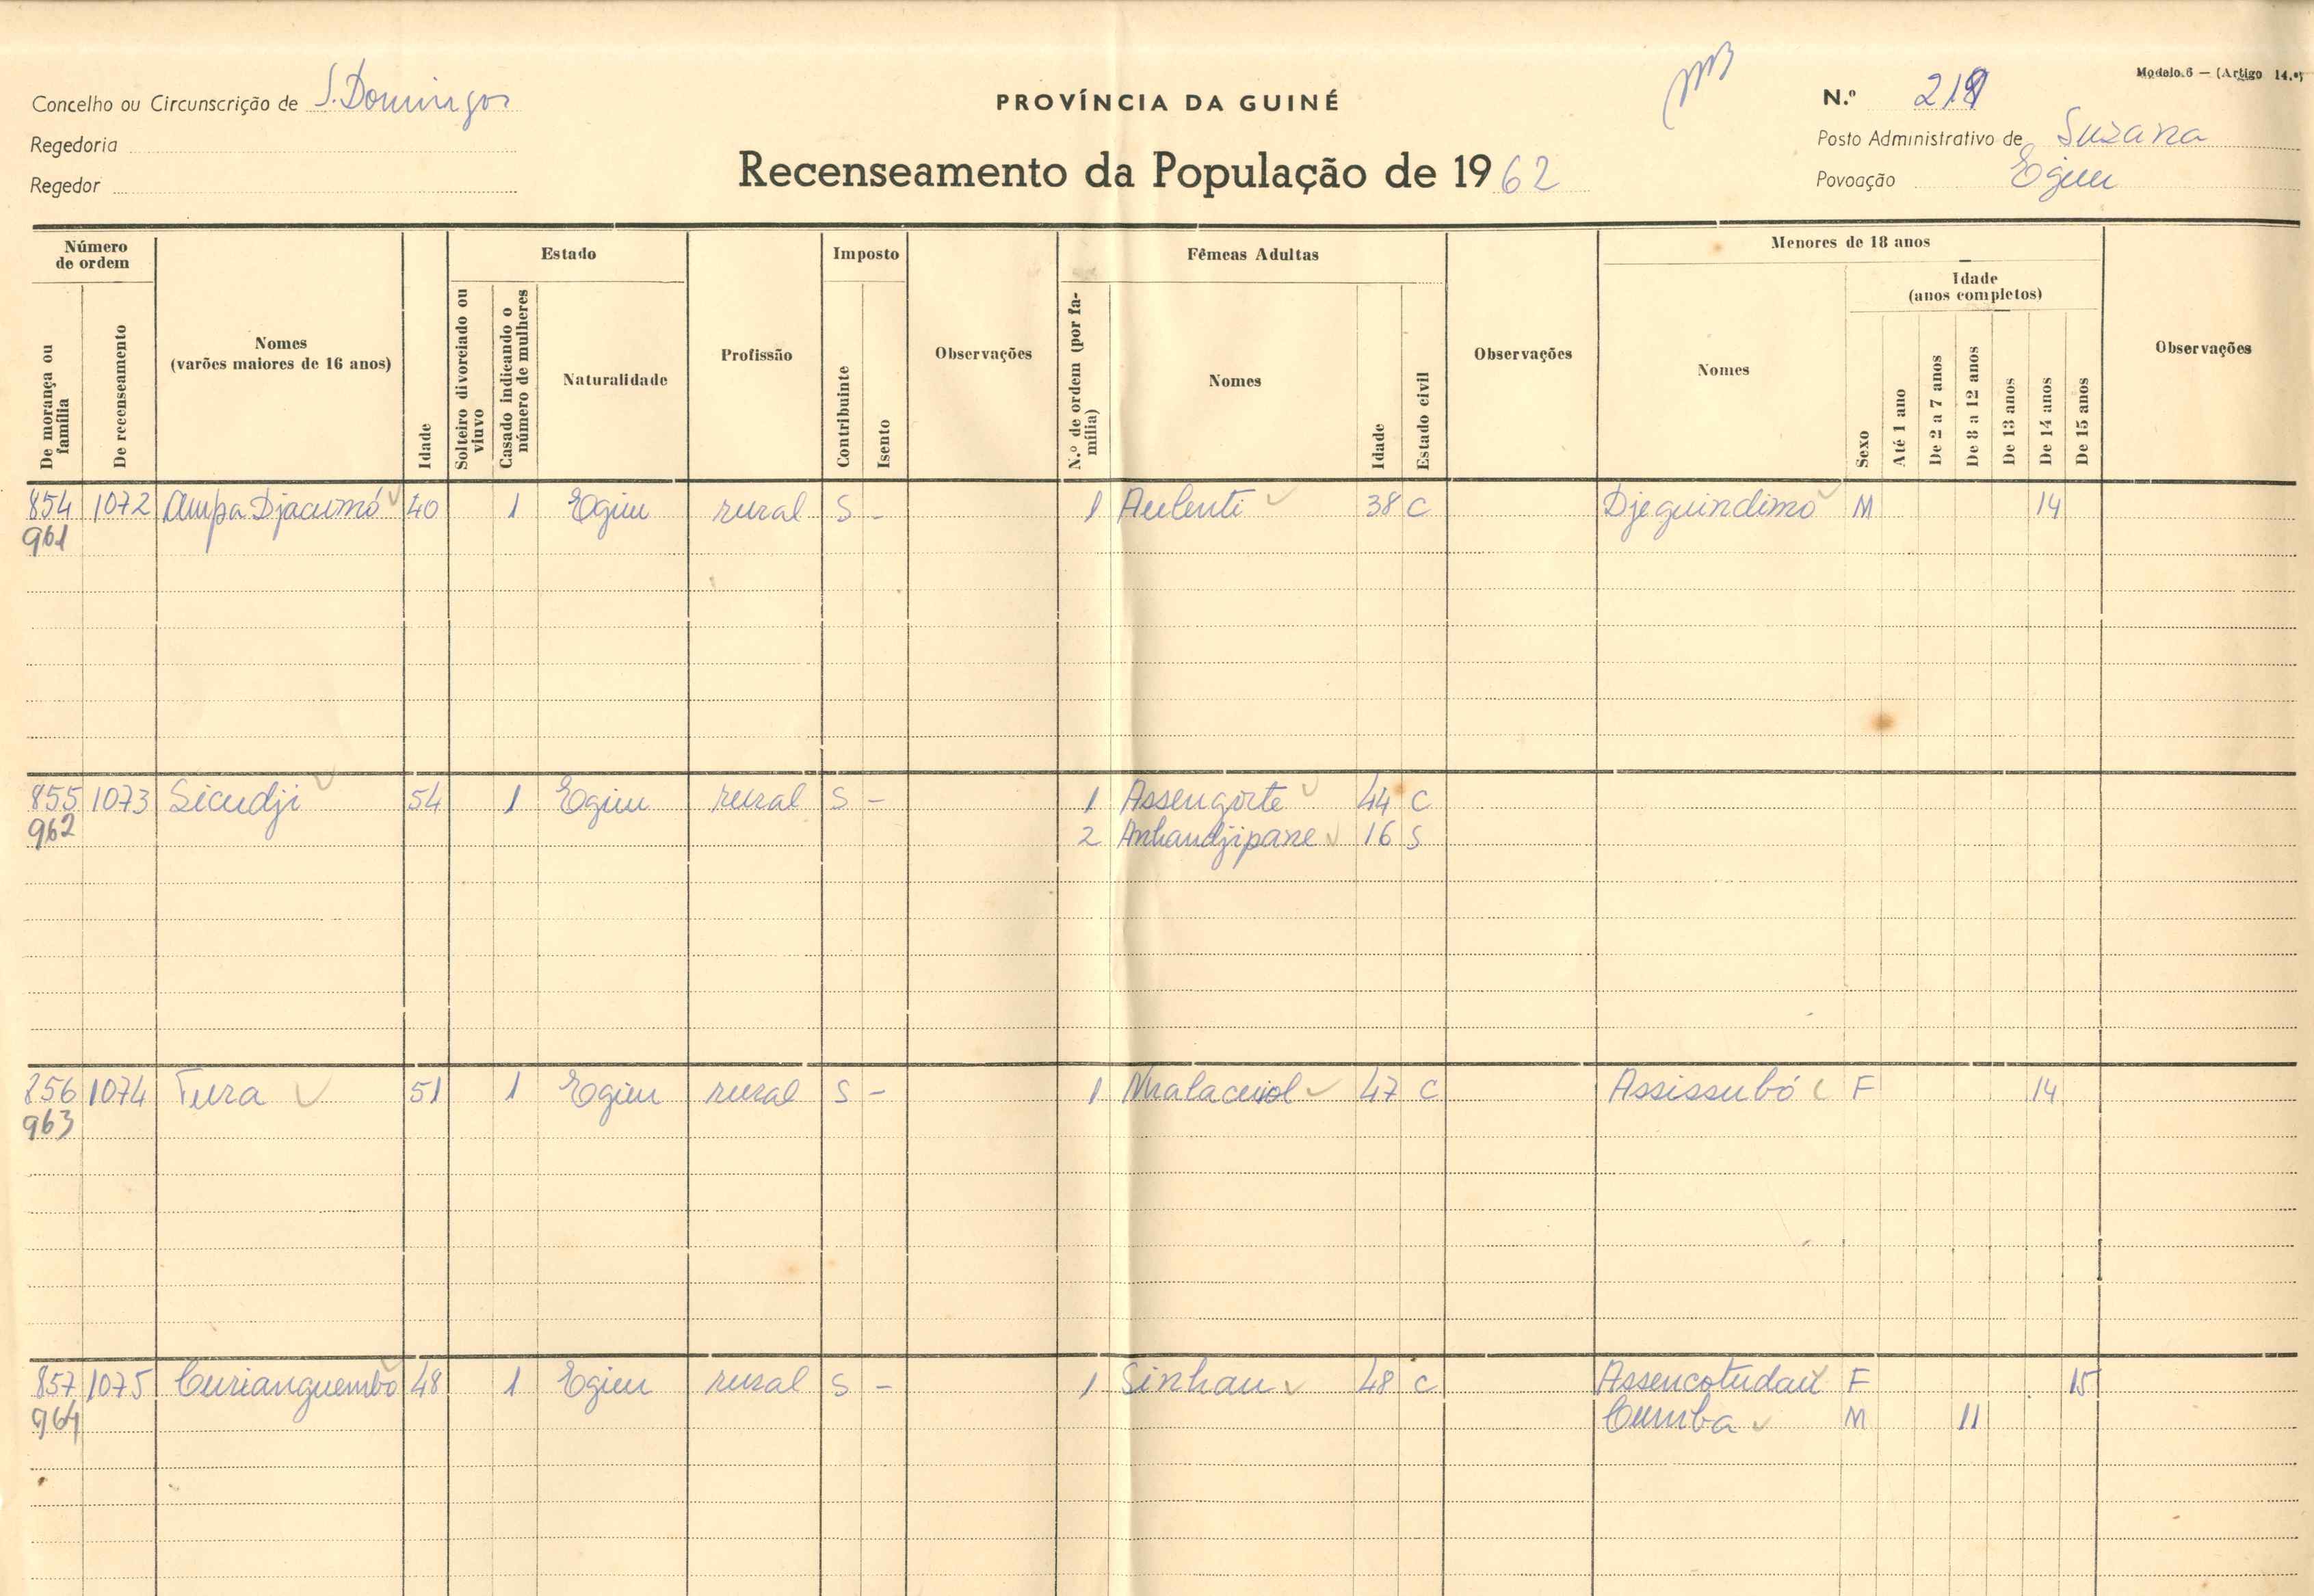 Modelo 6 — (Artigo 14.º)
Concelho ou Circunscrição de S. Domingos
PROVÍNCIA DA GUINÉ
N.º 218
Regedoria
Posto Administrativo de Suzana
Regedor
Recenseamento da População de 1962
Povoação Egiu
Número de ordem
De morança ou família
De recenseamento
Nomes
(varões maiores de 16 anos)
Idade
Estado
Solteiro divorciado ou viuvo
Casado indicando o número de mulheres
Naturalidade
Profissão
Imposto
Contribuinte
Isento
Observações
Fêmeas Adultas
N.º de ordem (por família)
Nomes
Idade
Estado civil
Observações
Menores de 18 anos
Nomes
Sexo
Idade
(anos completos)
Até 1 ano
De 2 a 7 anos
De 8 a 12 anos
De 13 anos
De 14 anos
De 15 anos
Observações
854 1072 Ampa Djacumó 40 1 Egiu rural S - 1 Aulenti 38 C Djeguindimó M 14
961
855 1073 Sicudji 54 1 Egiu rural S - 1 Assengorte 44 C
962 2 Anhandjipane 16 S
856 1074 Tura 51 1 Egiu rural S - 1 47 C Assissubó F 14
963
857 1075 Curianguembó 48 1 Egiu rural S - 1 Sinhau 48 C Assencotudau F 15
964 Cumba M 11